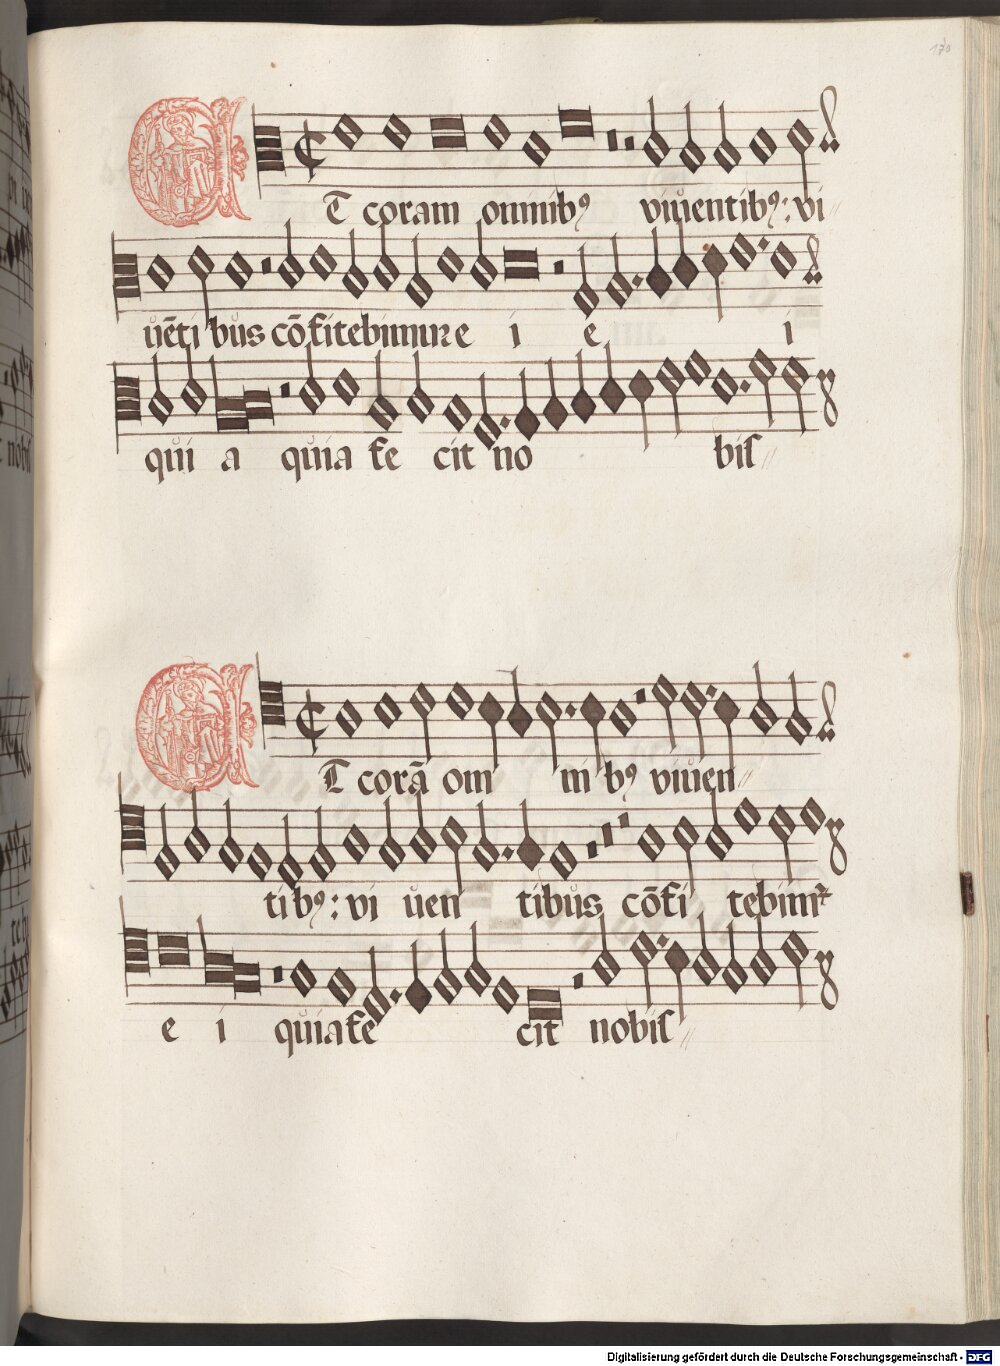 170
Et coram omnibꝰ viuentibꝰ: vi
uēti bus cōfitebimur e i e i
qui a quia fe cit no bis
Et corā om ni bꝰ viuen
tibꝰ: vi uen tibus cōfi tebimr
e i quia fe cit nobis
Digitalisierung gefördert durch die Deutsche Forschungsgemeinschaft - DFG